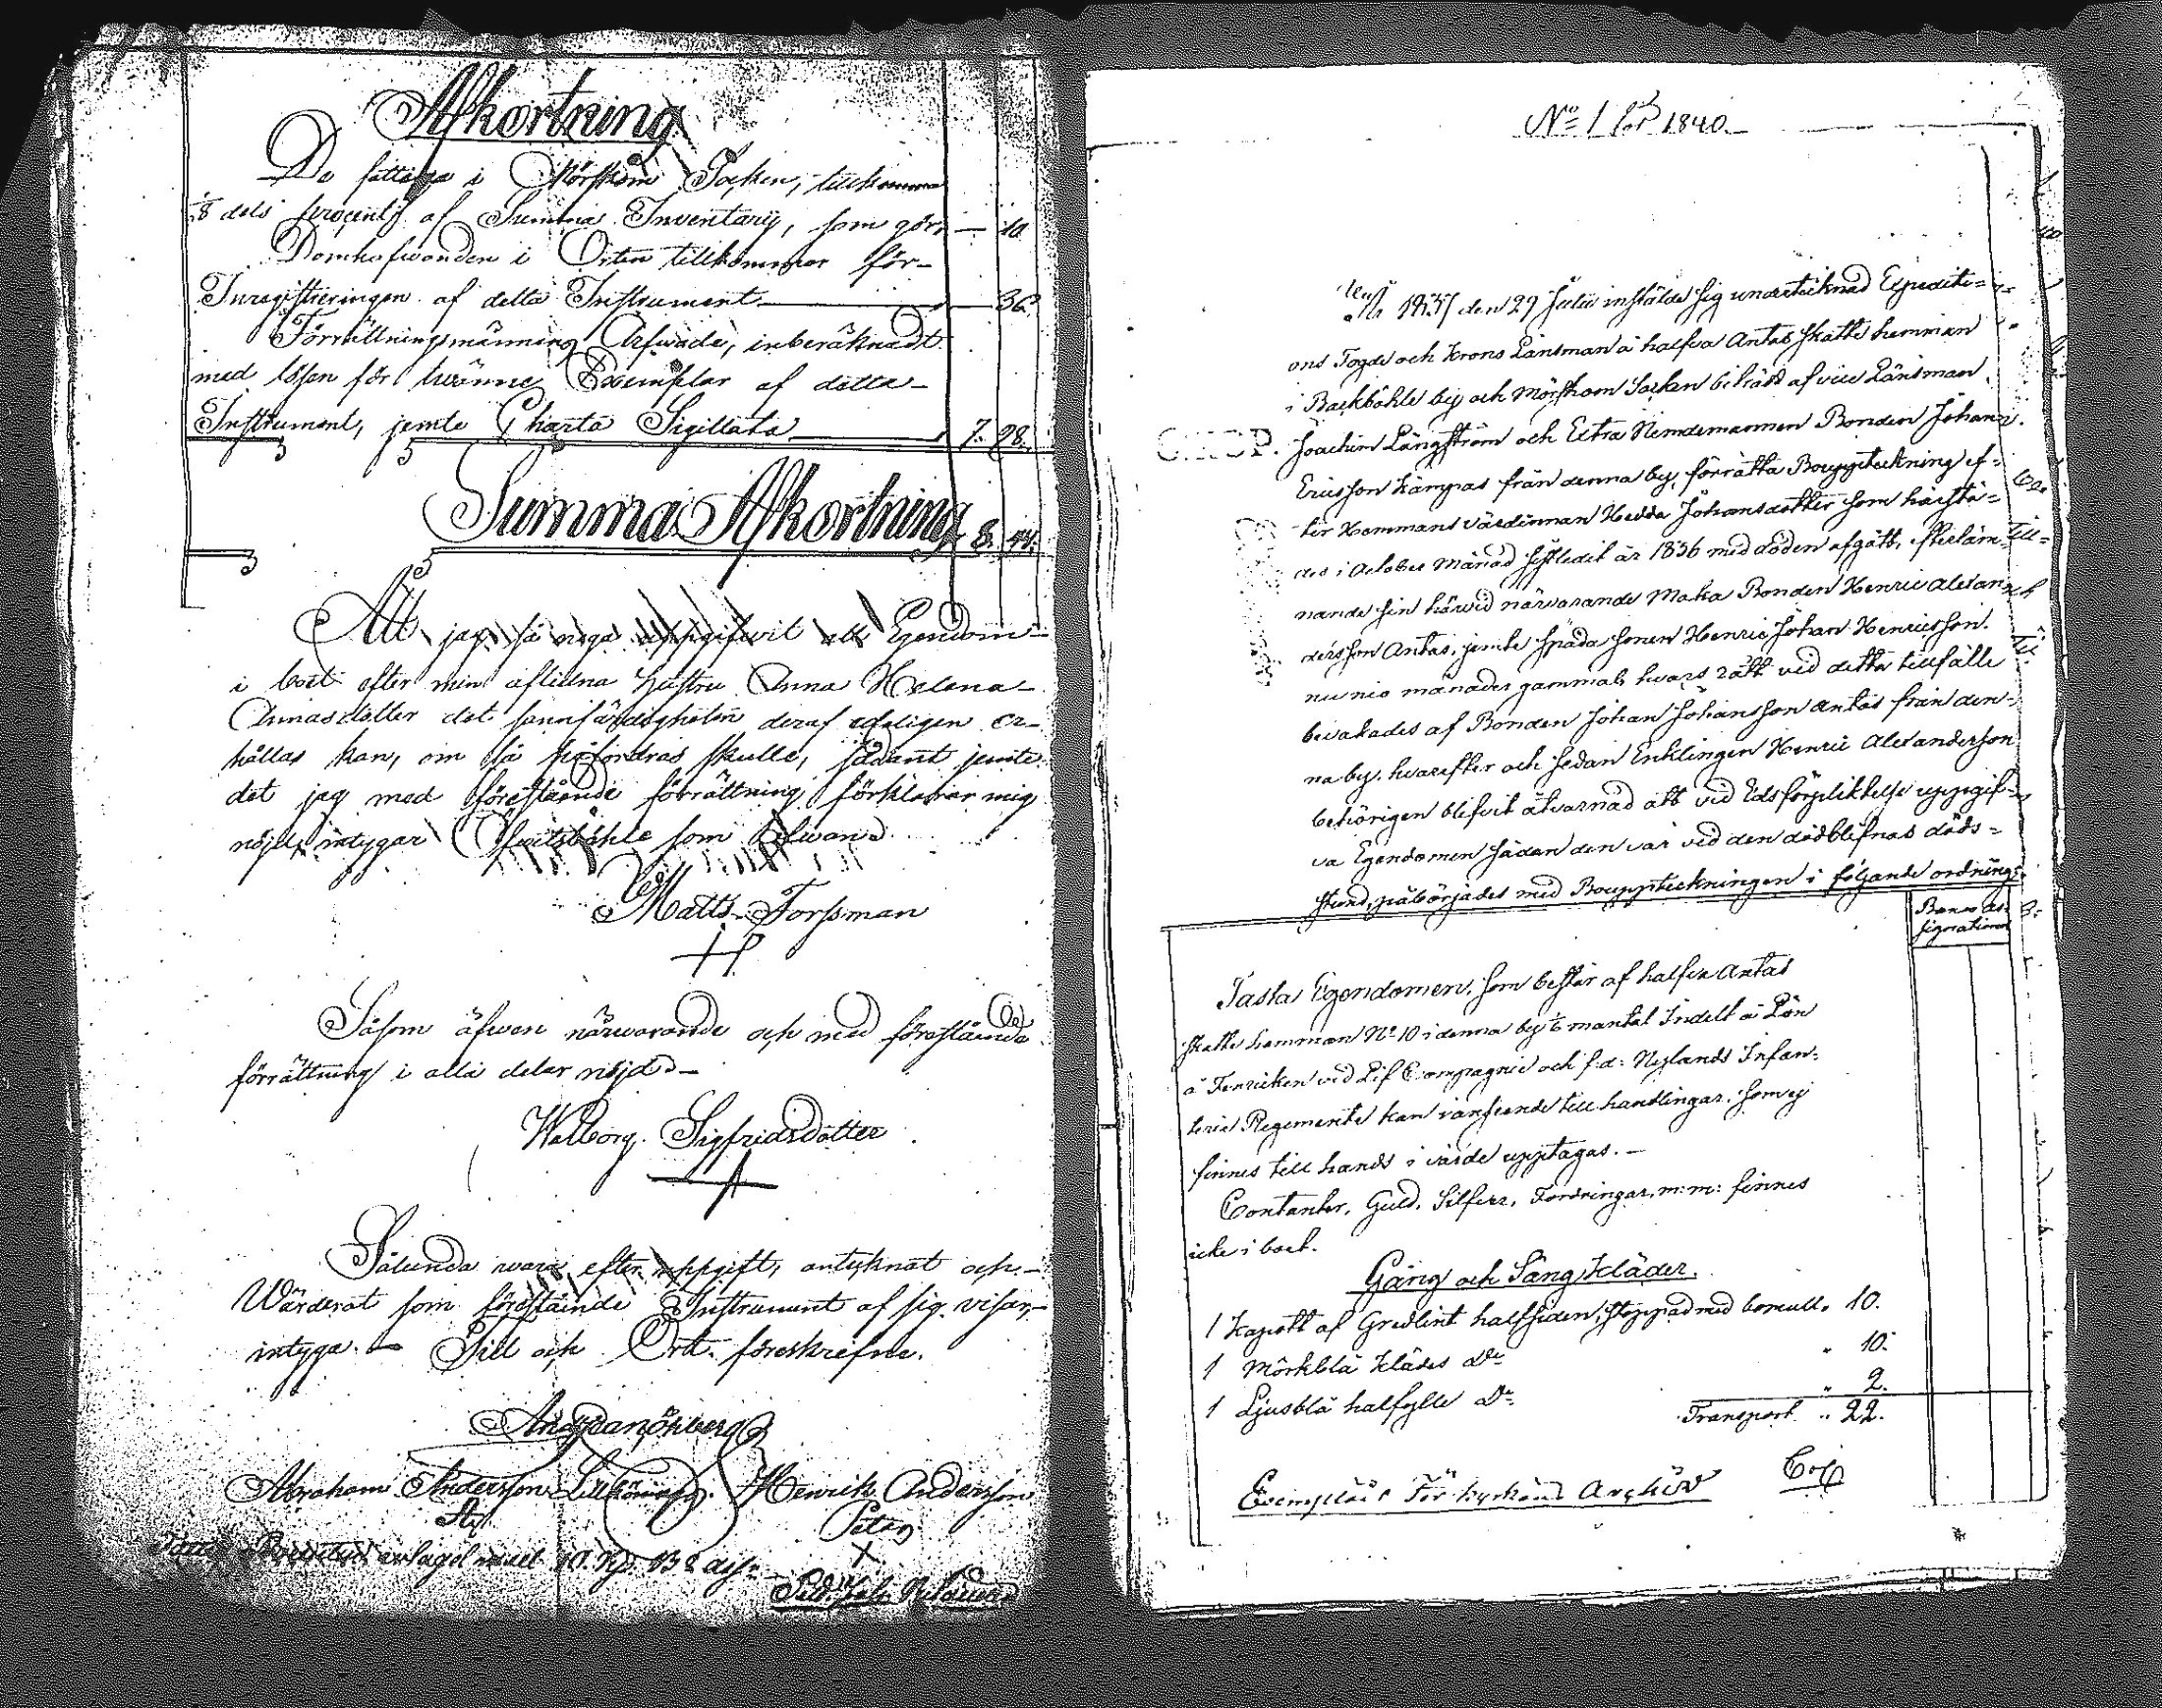 Afkortning
De fattiga i Mörskom Socken, tillkomma
1/8 dels procent af Summa Inventarij, som gör — 10.
Domhafwanden i Orten tillkommer för-
Inregistreringen af detta Instrument — 36.
Förrättningsmännens Arfwode, inberäknadt
med lösen för twänne Exemplar af detta
Instrument, jemte Charta Sigillata — 7. 98.
Summa Afkortning 8. 44.
Att jag så noga uppgifwit all Egendom
i boet efter min aflidna Hustru Anna Helena
det sannfärdigheten deraf edeligen er-
hållas kan, om så fordras skulle, sådant jemte
det jag med förestående förrättning förklarar mig
nöjd, intygar som ofwan
Matts Forssman
Såsom äfwen närwarande och med förestående
förrättning i alla delar nöjd
Walborg Sigfridsdotter
Sålunda wara efter uppgift, antecknat och
Wärderat som förestående Instrument af sig visar,
intyga. Tid och Ort föreskrefne.
Abraham Andersson Henrik Andersson
No 1 för 1840.
År 1837 den 29 Julii instälde sig undertecknad Expediti-
ons Fogde och Krono Länsman å halfva Antas Skatte hemman
i Backböhle by och Mörskom Socken biträdd af vice Länsman
Joachim Långström och Extra Nämdemannen Bonden Johan
Ericsson Kämpas från denna by, förrätta Bouppteckning ef-
ter Hemmans värdinnan Hedda Johansdotter som härstä-
des i October månad sistledit år 1836 med döden afgått, efterläm-
nande sin härvid närvarande Maka Bonden Henric Alexan-
dersson Antas, jemte späda sonen Henric Johan Henricsson
nu nio månader gammal, hvars rätt vid detta tillfälle
bevakades af Bonden Johan Johansson Antas från den-
na by. hvarefter och sedan Enklingen Henric Alexandersson
behörigen blifvit åtvarnad att vid Edsförpliktelse uppgif-
va Egendomen sådan den var vid den dödblefnas döds-
stund, påbörjades med Bouppteckningen i följande ordning.
Banco As-
signationer
Fasta Egendomen, som består af halfva Antas
Skatte hemman No 10 i denna by 1/6 mantal Indelt å Lön
å Fenricken ved Lif Compagnie och f.d. Nylands Infan-
terie Regemente kan i anseende till handlingar, som ej
finnes till hands i värde upptagas.—
Contanter, Guld, Silfver, Fordringar, m:m: finnes
icke i boet.
Gång och Säng Kläder.
1 Kapott af Gredlint halfsiden, stoppad med bomull " 10.
1 Mörkblå Klädes Do " 10.
1 Ljusblå halfylle Do " 2.
Transport " 22.
Exemplar För Kyrkans Archiv